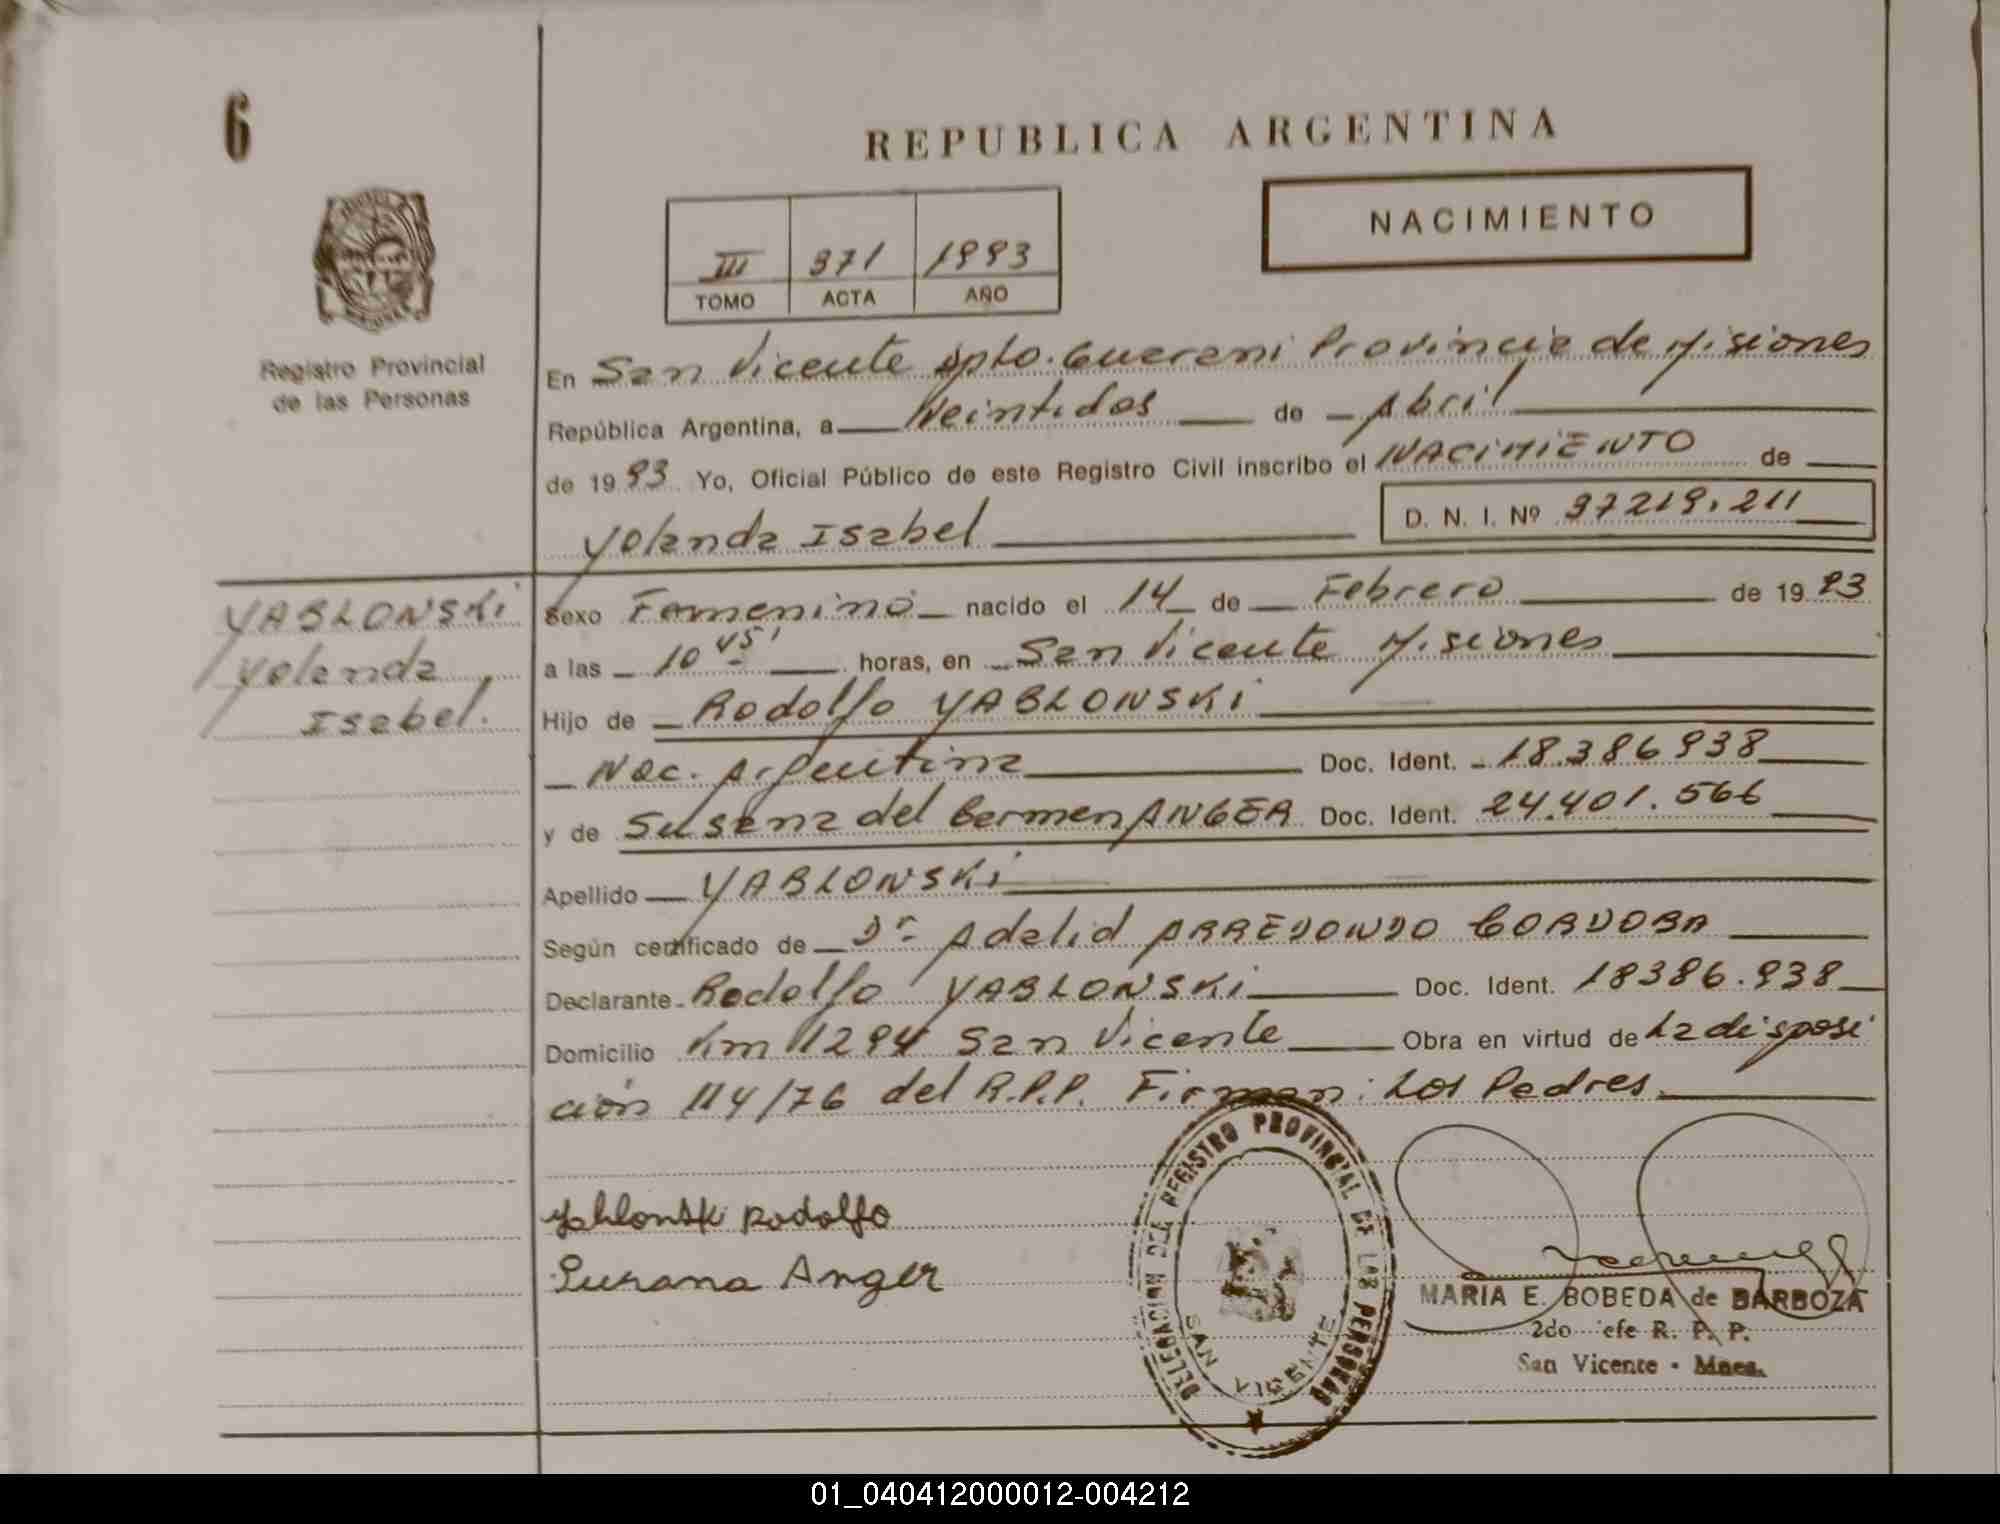 6
REPUBLICA ARGENTINA
NACIMIENTO
III 371 1993
TOMO ACTA AÑO
Registro Provincial
de las Personas
En San Vicente Dpto. Guarani Provincia de Misiones
República Argentina, a Veintidos de Abril
de 1993 Yo, Oficial Público de este Registro Civil inscribo el NACIMIENTO de
D. N. I. Nº 37219.211
Yolanda Isabel
YABLONSKi
Yolanda
Isabel.
Sexo Femenino nacido el 14 de Febrero de 1993
a las 10 45' horas, en San Vicente Misiones
Hijo de Rodolfo YABLONSKi
Nac. Argentina Doc. Ident. 18.386938
y de Susana del Carmen ANGER Doc. Ident. 24.401.566
Apellido YABLONSKi
Según certificado de Dr Adalid ARREDONDO CORDOBA
Declarante Rodolfo YABLONSKi Doc. Ident. 18386.938
Domicilio Km 1294 San Vicente Obra en virtud de La disposi
ción 114/76 del R.P.P. Firman: Los Padres
Yablonski Rodolfo
Susana Anger
DELEGACION DEL REGISTRO PROVINCIAL DE LAS PERSONAS
SAN VICENTE
MARIA E. BOBEDA de BARBOZA
2do efe R. P. P.
San Vicente - Mnes.
01_040412000012-004212